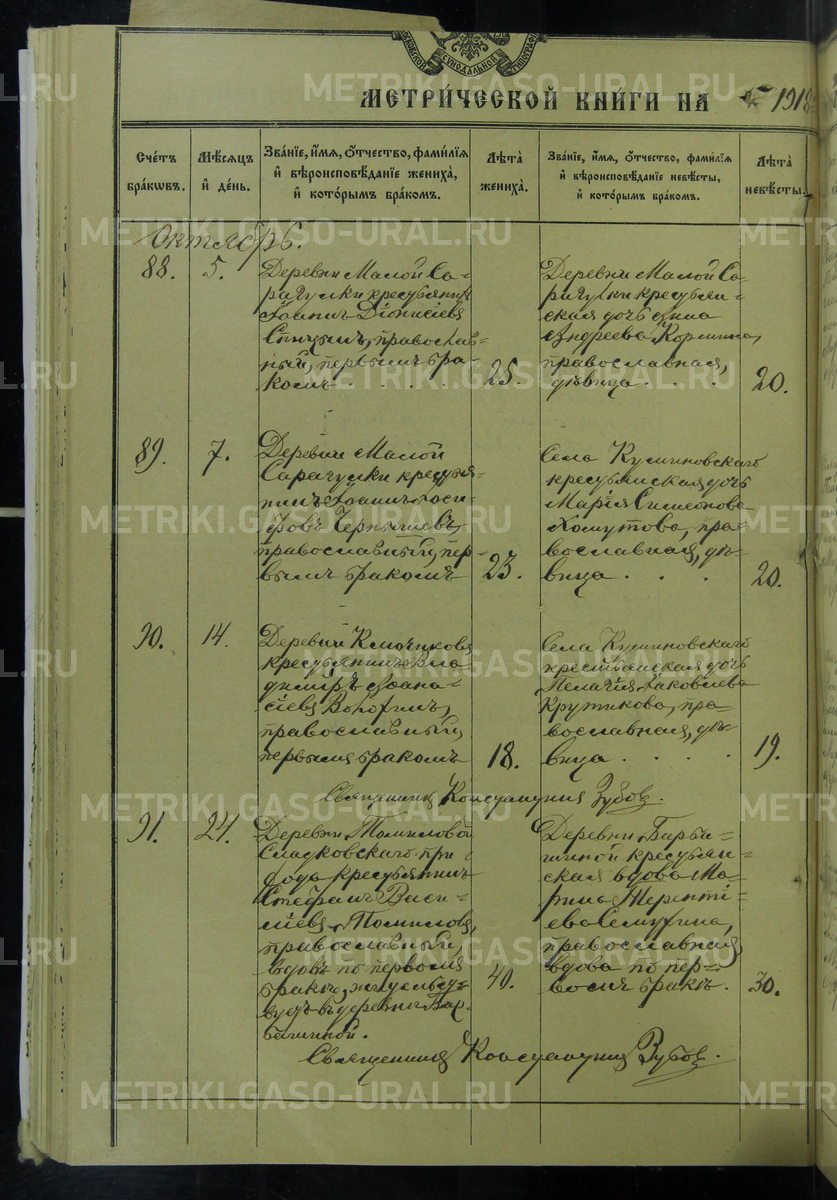 МОСКОВСКОЙ СѴНОДАЛЬНОЙ ТИПОГРАФІИ
МЕТРИ́ЧЕСКОЙ КНИ́ГИ НА 1918
Сче́тъ бра́кωвъ.
Мѣ́сяцъ и́ де́нь.
Зва́нїе, и́мя, ѻ́тчество, фами́лїя и́ вѣроисповѣ́данїе жениха̀, и́ кото́рымъ бра́комъ.
Лѣ́та жениха̀.
Зва́нїе, и́мя, ѻ́тчество, фами́лїя и́ вѣроисповѣ́данїе невѣ́сты, и́ кото́рымъ бра́комъ.
Лѣ́та невѣ́сты.
Октябрь.
88.
5.
Деревни Малой Са-
рагулки крестьянинъ
Іоаннъ Діонисіевъ
Спицынъ, православ-
ный, первымъ бра-
комъ . . . .
25.
Деревни Малой Са-
рагулки крестьян-
ская дочь Анна
Андреева Кормина,
православная,
дѣвица . . . .
20.
89.
7.
Деревни Малой
Сарагулки крестья-
нинъ Іоаннъ Іоси-
фовъ Чернышевъ,
православный, пер-
вымъ бракомъ
23.
Села Куминовскаго
крестьянская дочь
Марія Симеонова
Хомутова, пра-
вославная, дѣ-
вица . . .
20.
90.
14.
Деревни Ключикова
крестьянинъ Вла-
димиръ Аѳана-
сіевъ Волохинъ,
православный,
первымъ бракомъ
18.
Села Куминовскаго
крестьянская дочь
Пелагія Іаковлева
Крутикова, пра-
вославная, дѣ-
вица . . . .
19.
Священникъ Константинъ Зубовъ.
91.
24.
Деревни Томиловой
Сладковскаго при-
хода крестьянинъ
Стефанъ Васи-
ліевъ Томиловъ,
православный,
вдовъ по первомъ
бракѣ, жительст-
вуетъ въ деревни Бар-
башиной.
40.
Деревни Барба-
шиной крестьян-
ская вдова Ма-
рина Теренті-
ева Семухина,
православная
вдова по пер-
вомъ бракѣ.
30.
Священникъ Константинъ Зубовъ.
METRIKI.GASO-URAL.RU